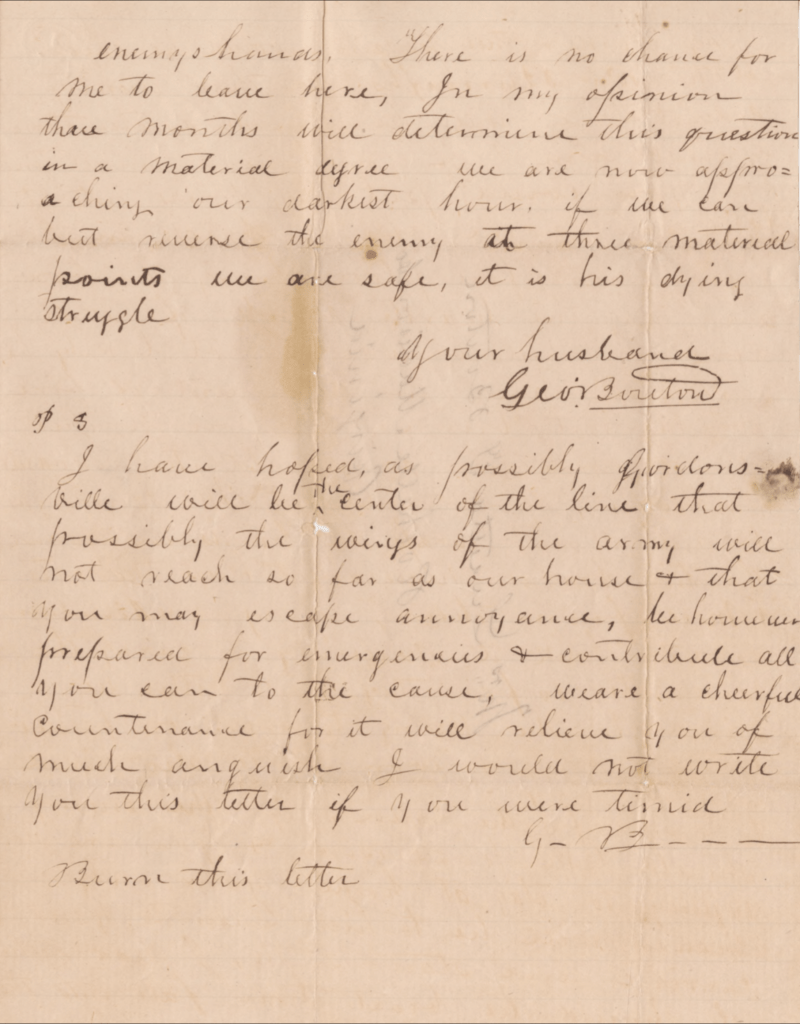 enemys hands. There is no chance for
me to leave here, In my opinion
three months will determine this question
in a material degree we are now appro=
aching our darkest hour. if we can
but reverse the enemy at three material
points we are safe, it is his dying
struggle
Your husband
Geo. Bourton
P S
I have hoped, as possibly Gordons=
ville will be the center of the line that
possibly the wings of the army will
not reach so far as our house & that
you may escape annoyance, be however
prepared for emergencies & contribute all
you can to the cause, weare a cheerful
countenance for it will relieve you of
much anguish I would not write
you this letter if you were timid
G- B - - -
Burn this letter